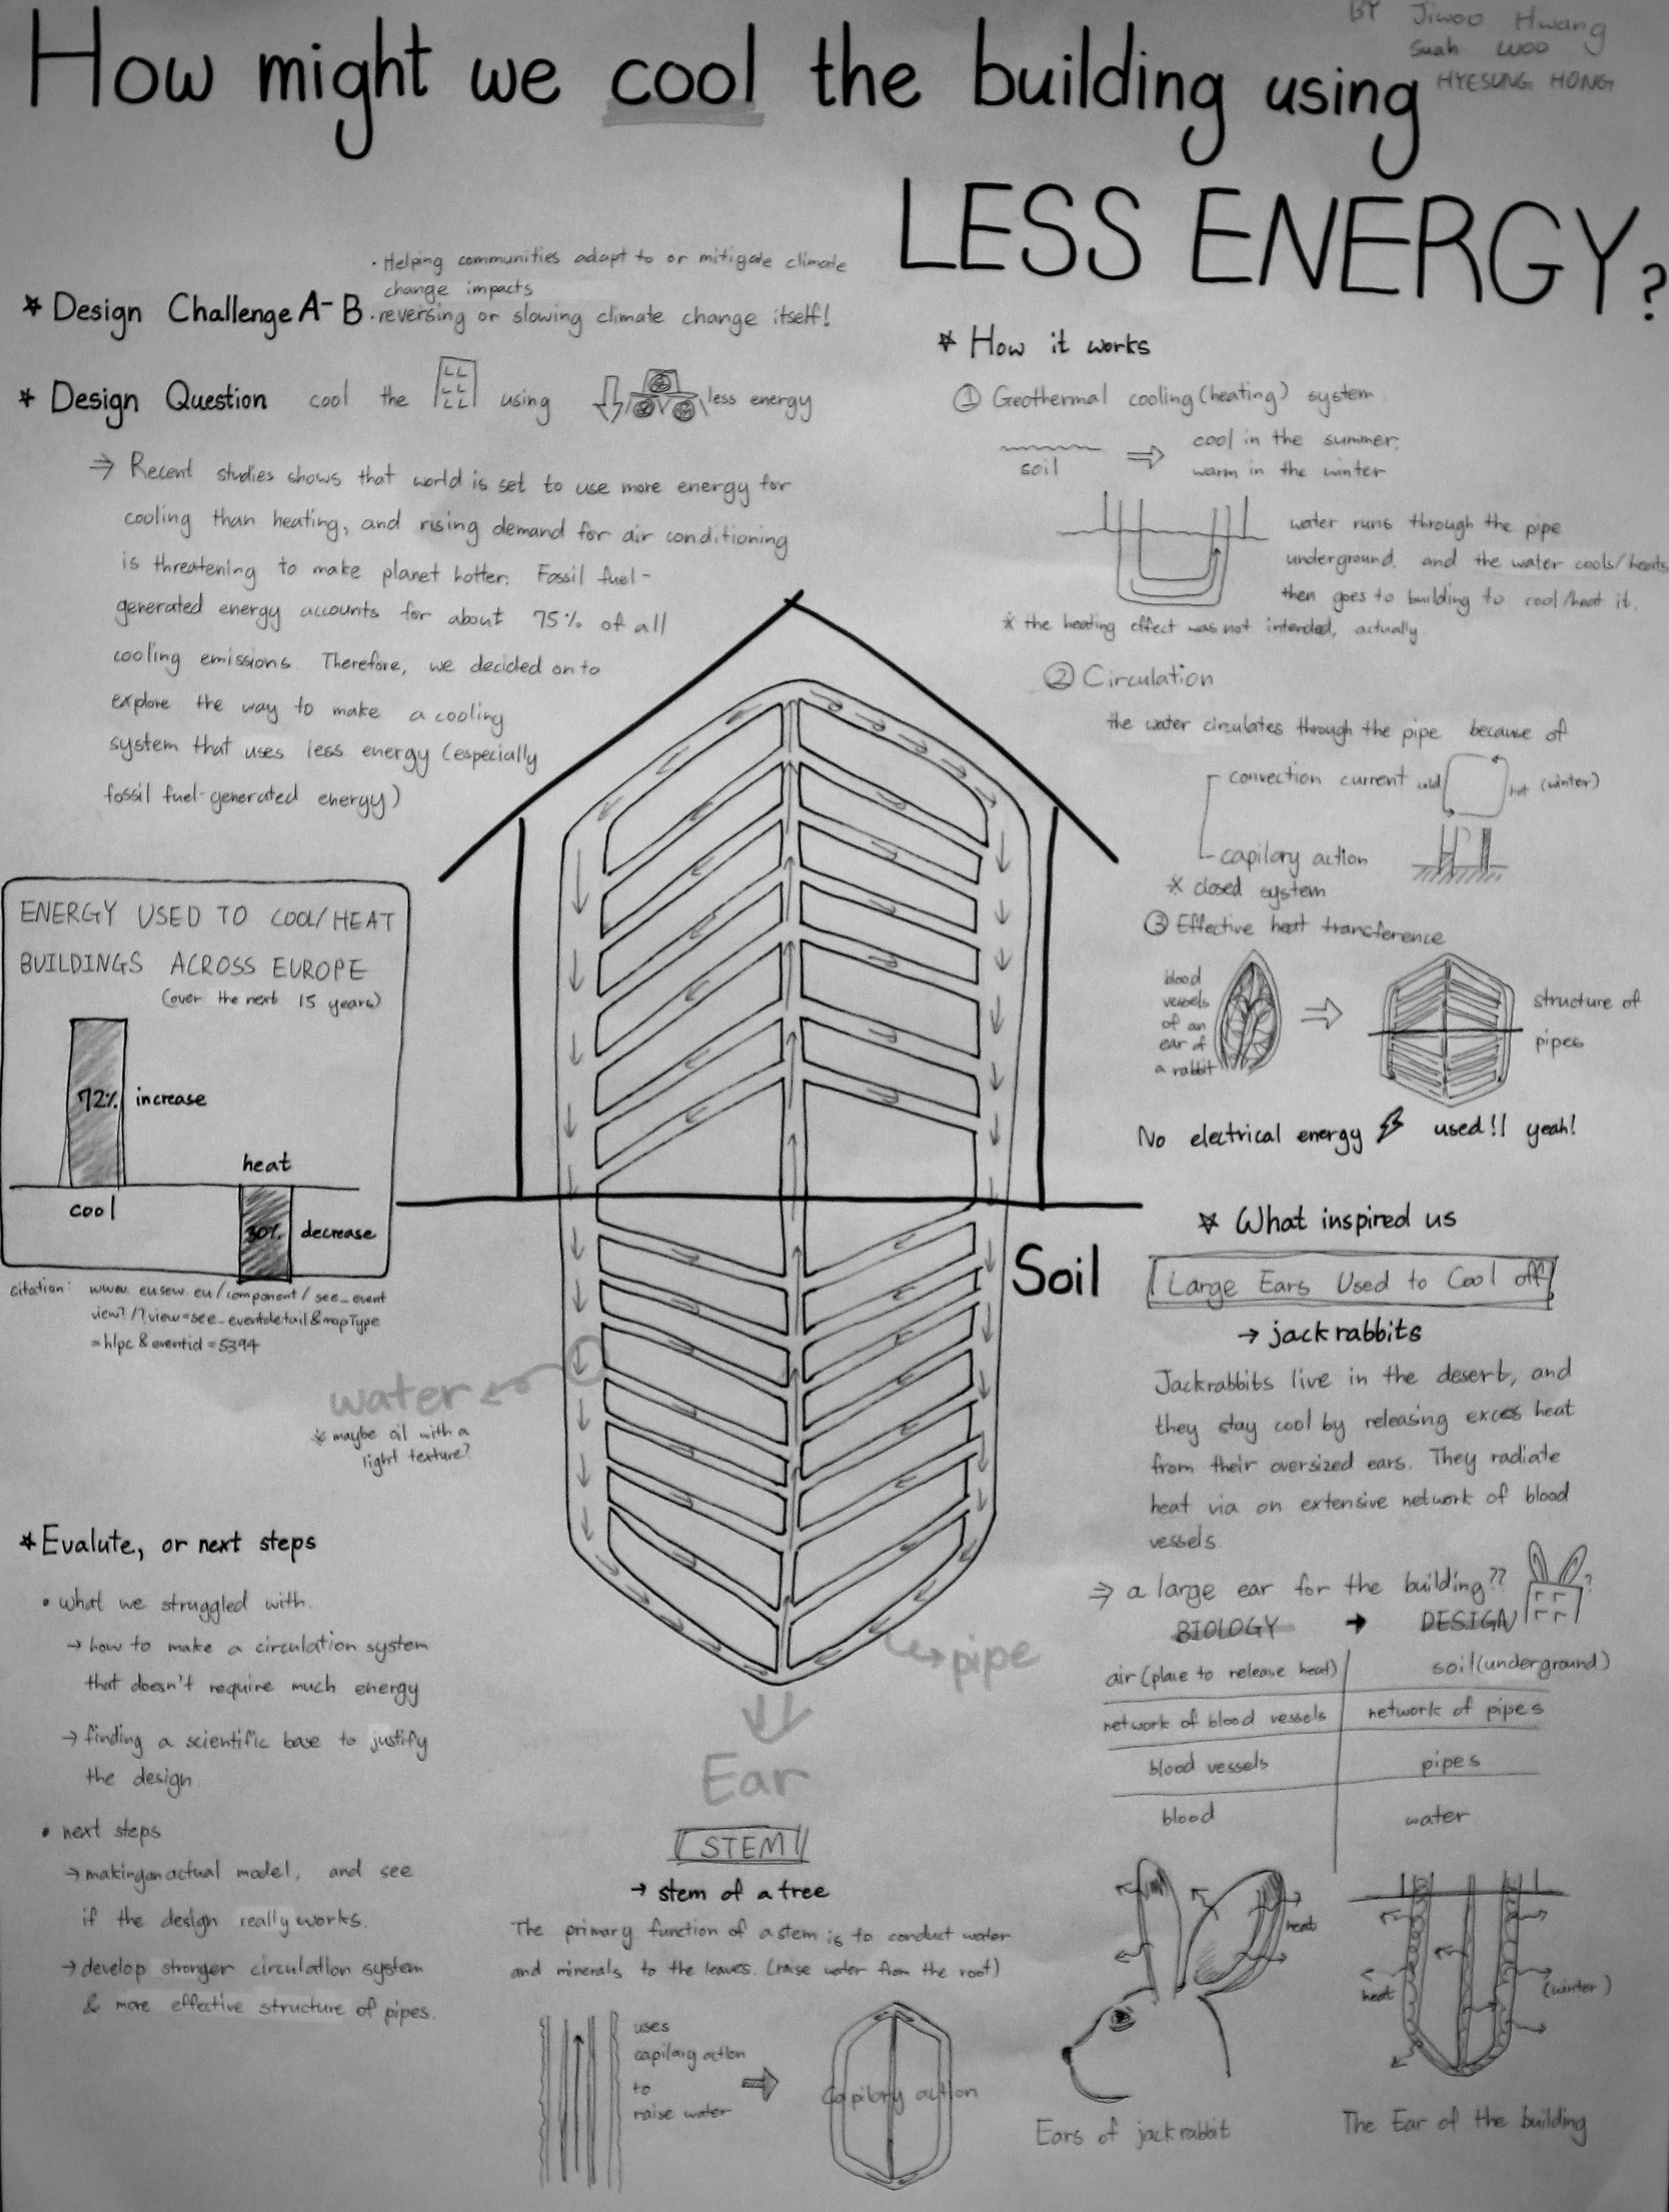 BY Jiwoo Hwang
Suah Woo
HYESUNG HONG
How might we cool the building using
LESS ENERGY?
* Design Challenge A-B
· Helping communities adapt to or mitigate climate
change impacts
· reversing or slowing climate change itself!
* Design Question cool the using less energy
⇒ Recent studies shows that world is set to use more energy for
cooling than heating, and rising demand for air conditioning
is threatening to make planet hotter. Fossil fuel-
generated energy accounts for about 75% of all
cooling emissions. Therefore, we decided on to
explore the way to make a cooling
system that uses less energy (especially
fossil fuel-generated energy)
ENERGY USED TO COOL/HEAT
BUILDINGS ACROSS EUROPE
(over the next 15 years)
72% increase
heat
cool
30% decrease
citation: www.eusew.eu/component/see_event
view?/?view=see_eventdetail&mapType
=hlpc&eventid=5394
water
* maybe oil with a
light texture?
Soil
pipe
Ear
* Evalute, or next steps
• what we struggled with.
→ how to make a circulation system
that doesn't require much energy
→ finding a scientific base to justify
the design.
• next steps
→ making an actual model, and see
if the design really works.
→ develop stronger circulation system
& more effective structure of pipes.
STEM
→ stem of a tree
The primary function of a stem is to conduct water
and minerals to the leaves. (raise water from the root)
uses
capilary action
to
raise water
Capilary action
* How it works
① Geothermal cooling (heating) system.
soil ⇒ cool in the summer,
warm in the winter
water runs through the pipe
underground, and the water cools/heats
then goes to building to cool/heat it.
* the heating effect was not intended, actually.
② Circulation
the water circulates through the pipe because of
convection current cold hot (winter)
capilary action
* closed system
③ Effective heat transference
blood
vessels
of an
ear of
a rabbit
structure of
pipes
No electrical energy used!! yeah!
* What inspired us
Large Ears Used to Cool off
→ jackrabbits
Jackrabbits live in the desert, and
they stay cool by releasing exces heat
from their oversized ears. They radiate
heat via on extensive network of blood
vessels
⇒ a large ear for the building?? ?
BIOLOGY → DESIGN
air (place to release heat) soil (underground)
network of blood vessels network of pipes
blood vessels pipes
blood water
heat
heat (winter)
Ears of jackrabbit
The Ear of the building